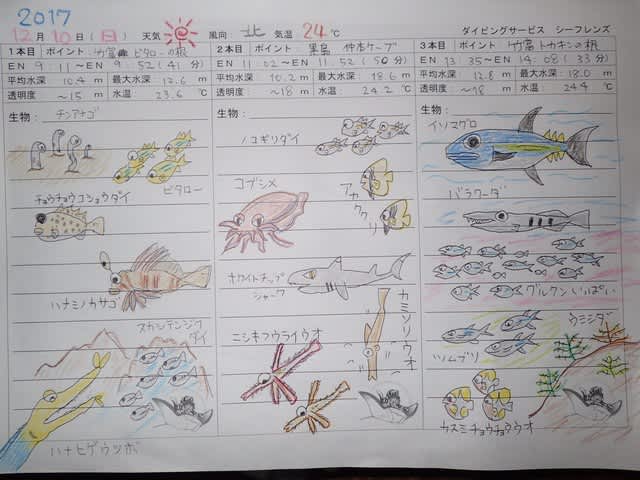 2017
12月10日(日) 天気 風向：北 気温 24℃ ダイビングサービス シーフレンズ
1本目 ポイント：竹富 ビタローの根
EN 9：11～EN 9：52(41分)
平均水深 10.4m 最大水深 12.6m
透明度 ～15m 水温 23.6℃
生物：チンアナゴ
ビタロー
チョウチョウコショウダイ
ハナミノカサゴ
スカシテンジクダイ
ハナヒゲウツボ
2本目 ポイント：黒島 仲本ケーブ
EN 11：02～EN 11：52(50分)
平均水深 10.2m 最大水深 18.6m
透明度 ～18m 水温 24.2℃
生物：
ノコギリダイ
コブシメ
アカククリ
ホワイトチップシャーク
カミソリウオ
ニシキフウライウオ
3本目 ポイント：竹富 トカキンの根
EN 13：35～EN 14：08(33分)
平均水深 12.8m 最大水深 18.0m
透明度 ～18m 水温 24.4℃
生物：
イソマグロ
バラクーダ
グルクンいっぱい
ウミシダ
ツムブリ
カスミチョウチョウウオ